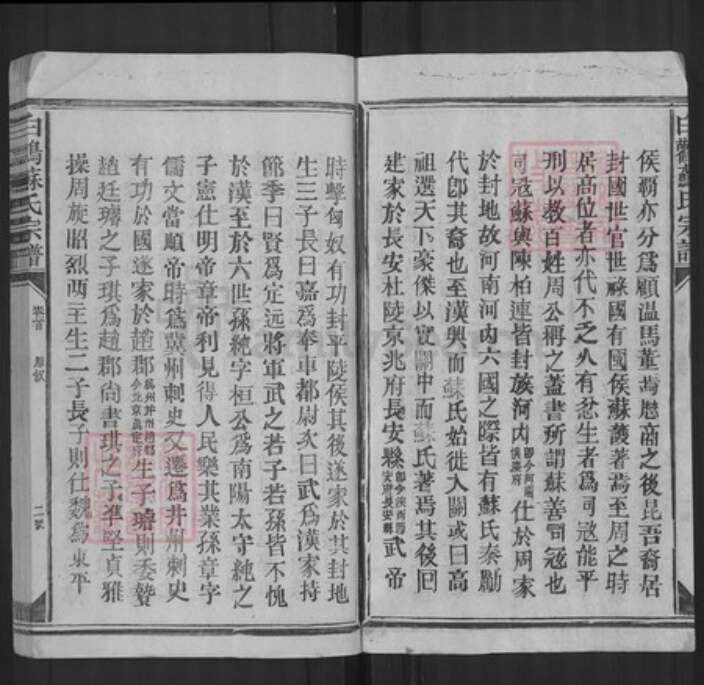 侯霸亦分爲顧溫馬董焉懸商之後昆吾裔居
封國世官世祿國有國侯蘇護著焉至周之時
居高位者亦代不乏人有忿生者爲司寇能平
刑以教百姓周公稱之蓋書所謂蘇善司寇也
司寇蘇與陳柏連皆封族河内即今河南懷慶府仕於周家
於封地故河南河内六國之際皆有蘇氏秦勵
代卽其裔也至漢興而蘇氏始徙入關或曰高
祖選天下豪傑以實關中而蘇氏著焉其後囘
建家於長安杜陵京兆府長安縣武帝
時擊匈奴有功封平陵侯其後遂家於其封地
生三子長曰嘉爲奉車都尉次曰武爲漢家持
節季曰賢爲定远將軍武之若子若孫皆不愧
於漢至於六世孫純字桓公爲南陽太守純之
子憲仕明帝章帝利見得人民樂其業孫章字
儒文當順帝時爲冀州刺史又遷爲并州刺史
有功於國遂家於趙郡生子瓊則委贄
趙廷瓊之子琪爲趙郡尚書琪之子準堅貞雅
操周旋昭烈两主生二子長子則仕魏爲東平
白鶴蘇氏宗譜
卷首
二
白鶴蘇氏宗譜